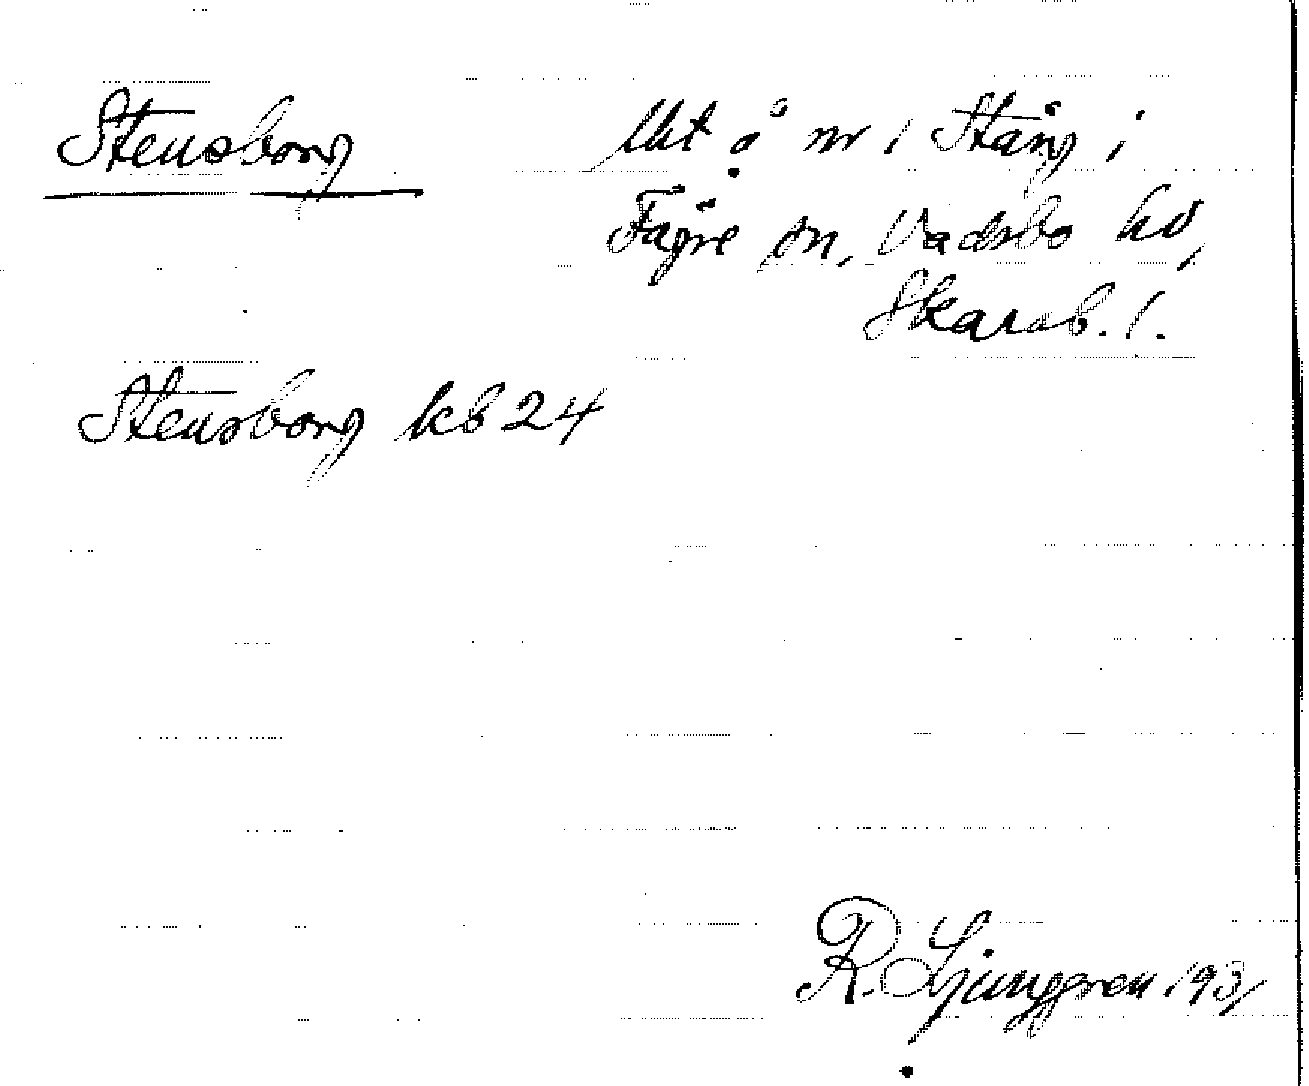 Stensborg
Utj å nr 1 Stång i
Fägre sn, Vadsbo hd,
Skarab. l.
Stensborg kb 24
R. Ljunggren 1931